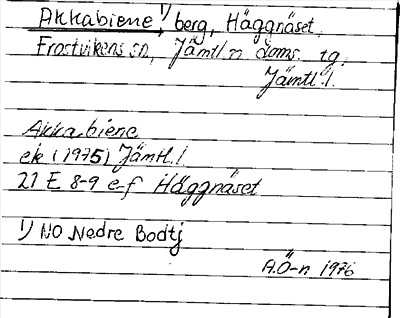 Akkabiene 1), berg, Häggnäset,
Frostvikens sn, Jämtl. n. doms. tg,
Jämtl. l.
Akkabiene
ek (1975) Jämtl. l
21 E 8-9 e-f Häggnäset
1) NO Nedre Bodtj
A.Ö-n 1976